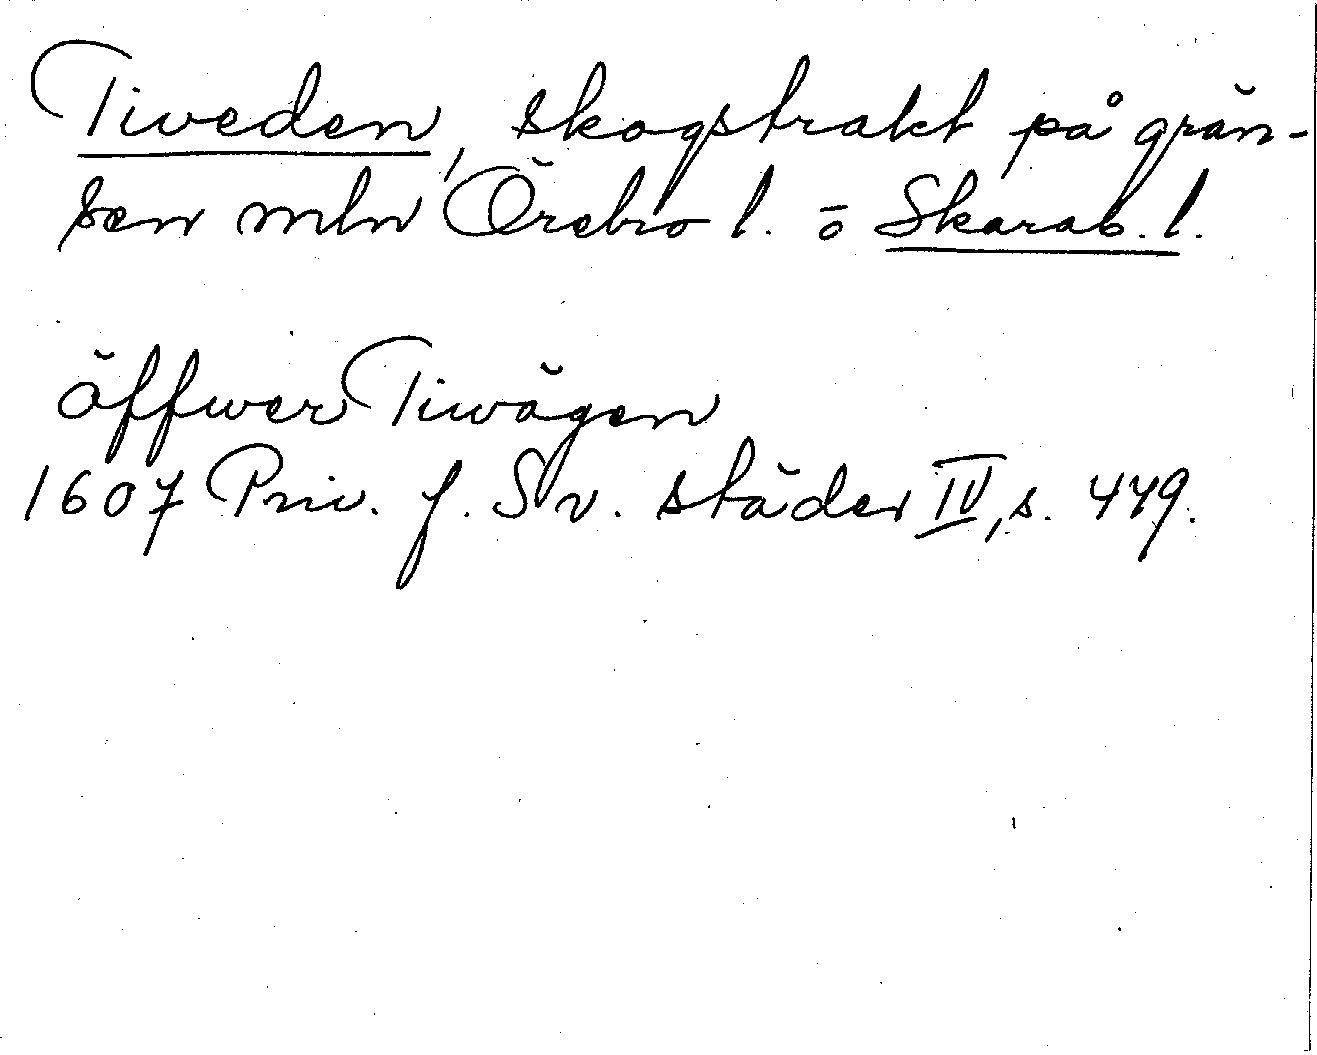 Tiweden, skogstrakt på grän-
sen mln Örebro l. o Skarab. l.
öffwer Tiwägen
1607 Priv. f. Sv. städer IV, s. 449.